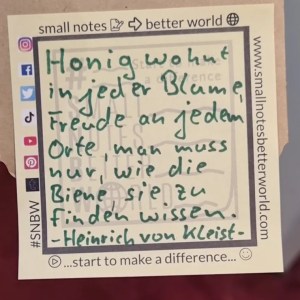 small notes better world
Honig wohnt
in jeder Blume,
Freude an jedem
Orte, man muss
nur, wie die
Biene, sie zu
finden wissen.
-Heinrich von Kleist-
...start to make a difference...
#SNBW
www.smallnotesbetterworld.com